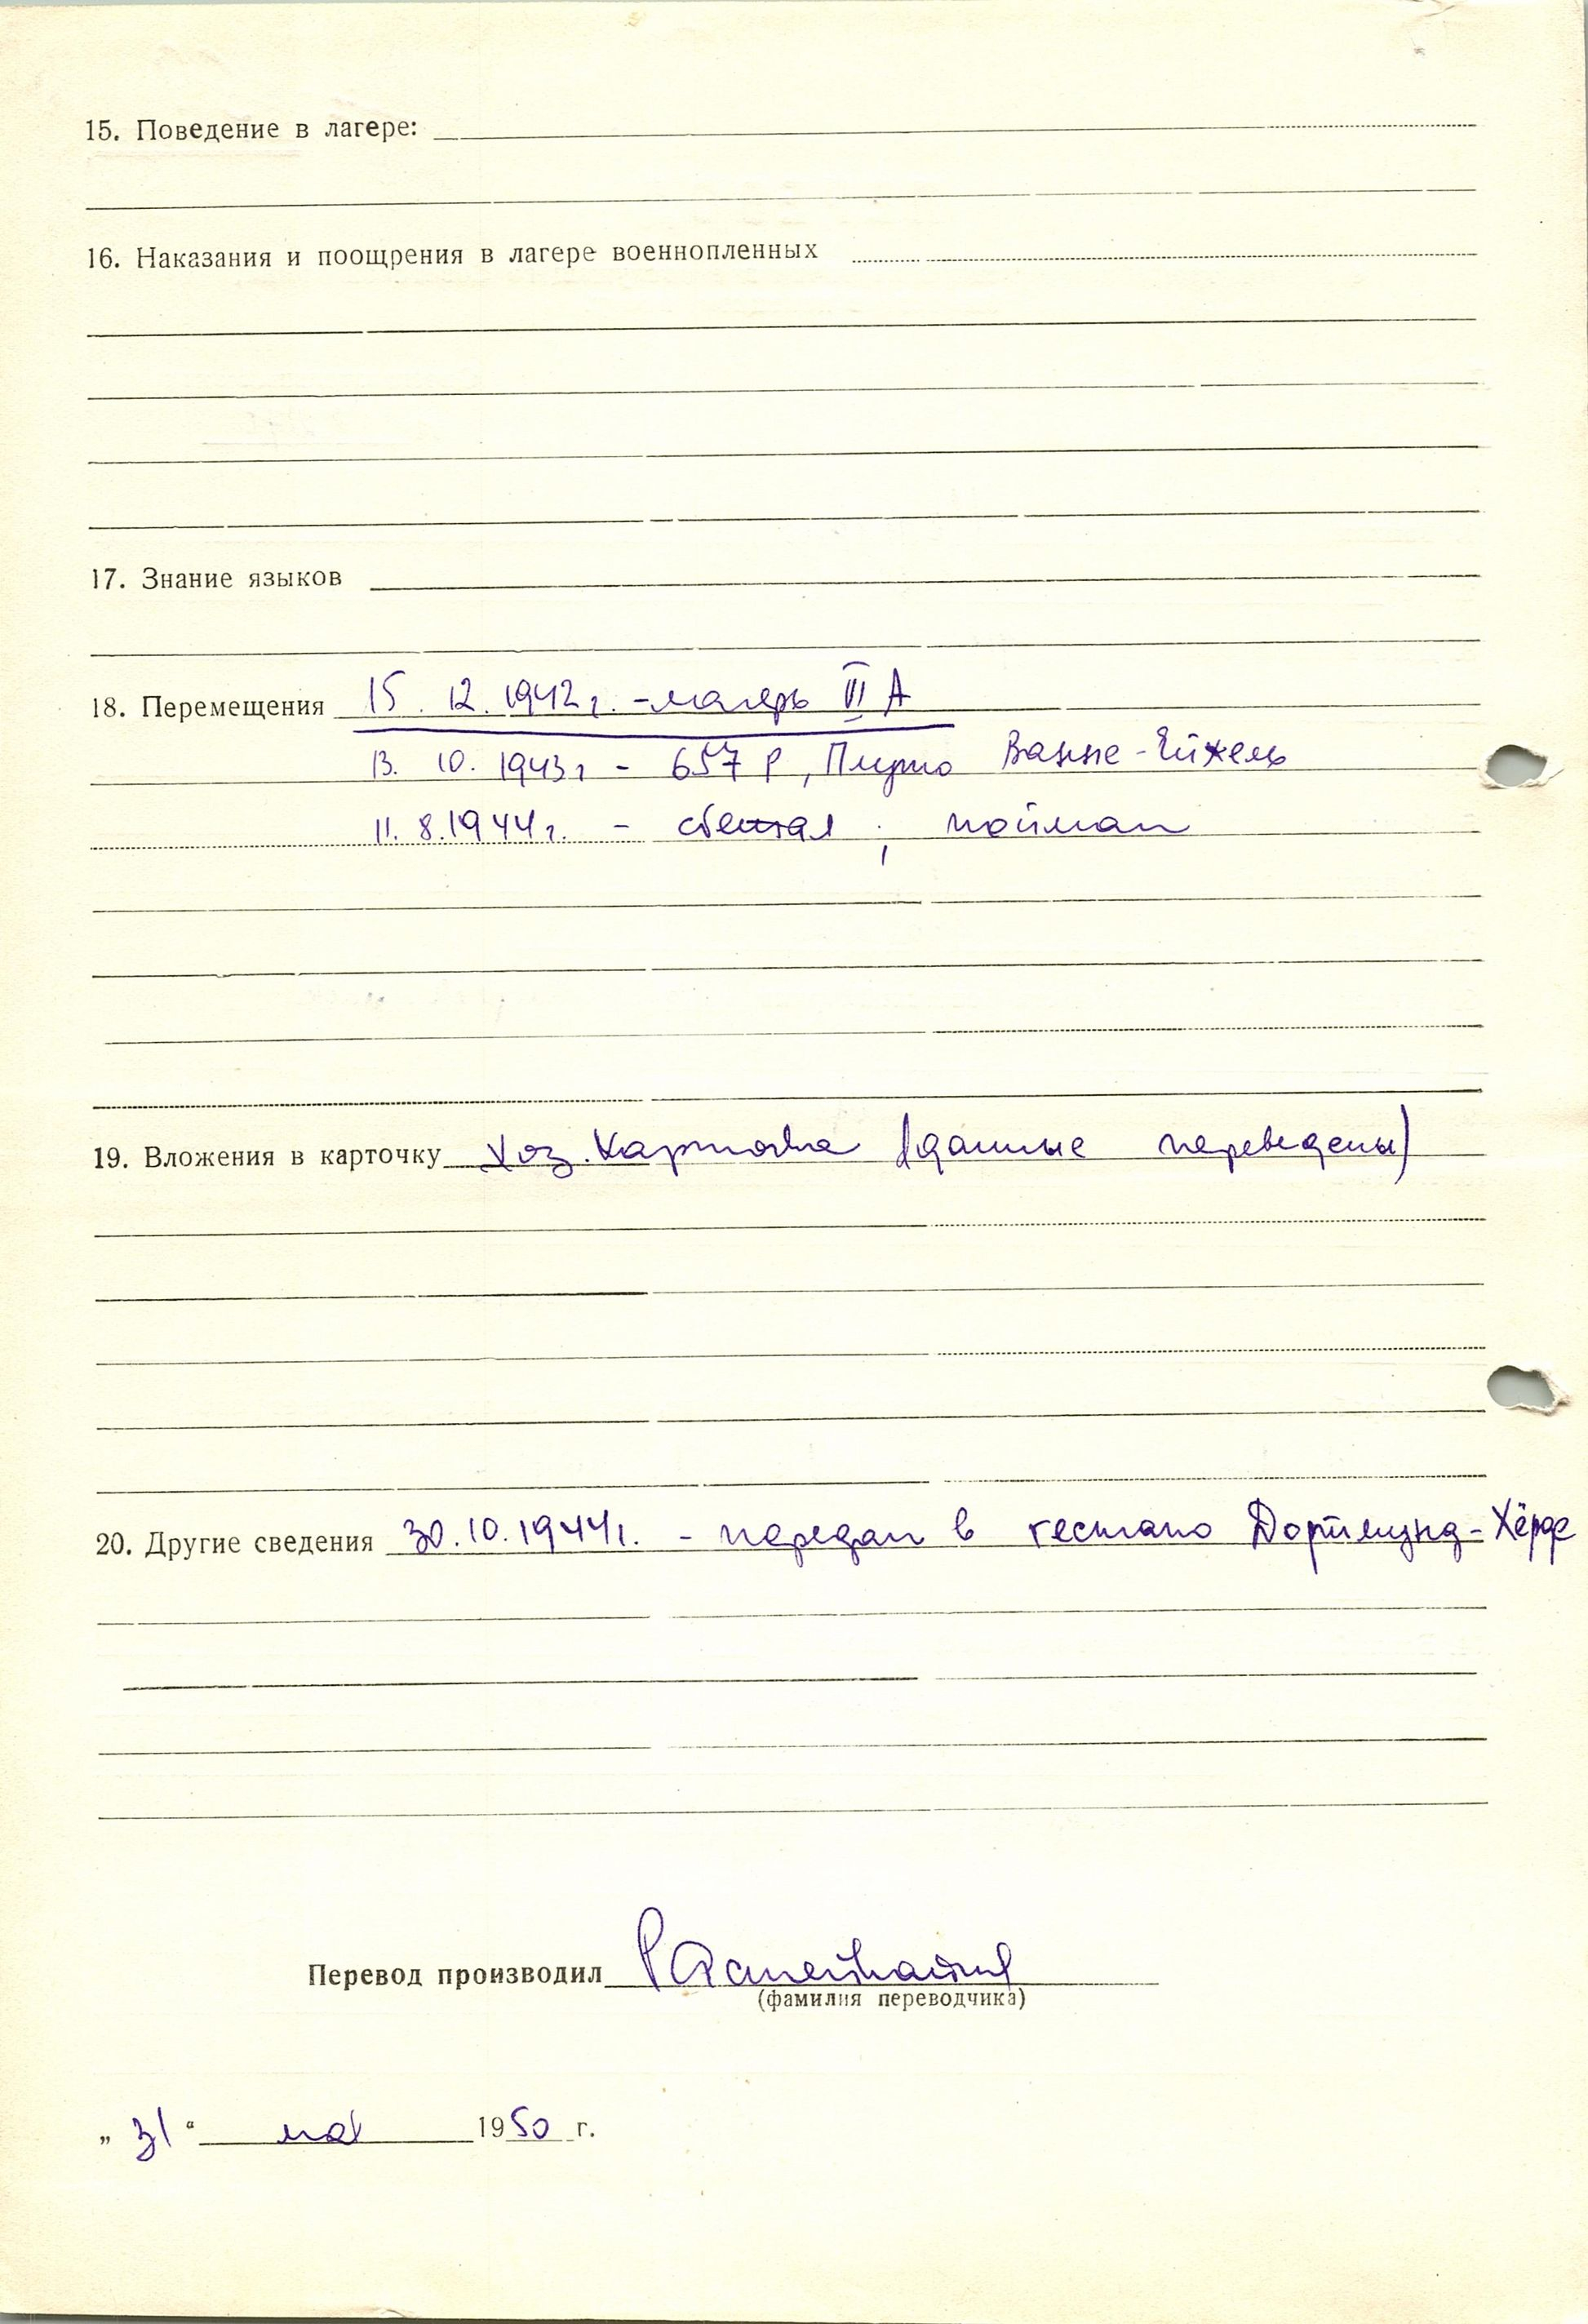 15. Поведение в лагере:
16. Наказания и поощрения в лагере военнопленных
17. Знание языков
18. Перемещения 15. 12. 1942 г. - лагерь VI А
13. 10. 1943 г - 657 Р, Плуто Ванне-Ейкель
11. 8. 1944 г. - сбежал ; пойман
19. Вложения в карточку Хоз. карточка (данные переведены)
20. Другие сведения 30. 10. 1944 г. - передан в гестапо Дортмунд-Хёрде
Перевод производил
(фамилия переводчика)
„ 31 “ мая 1950 г.